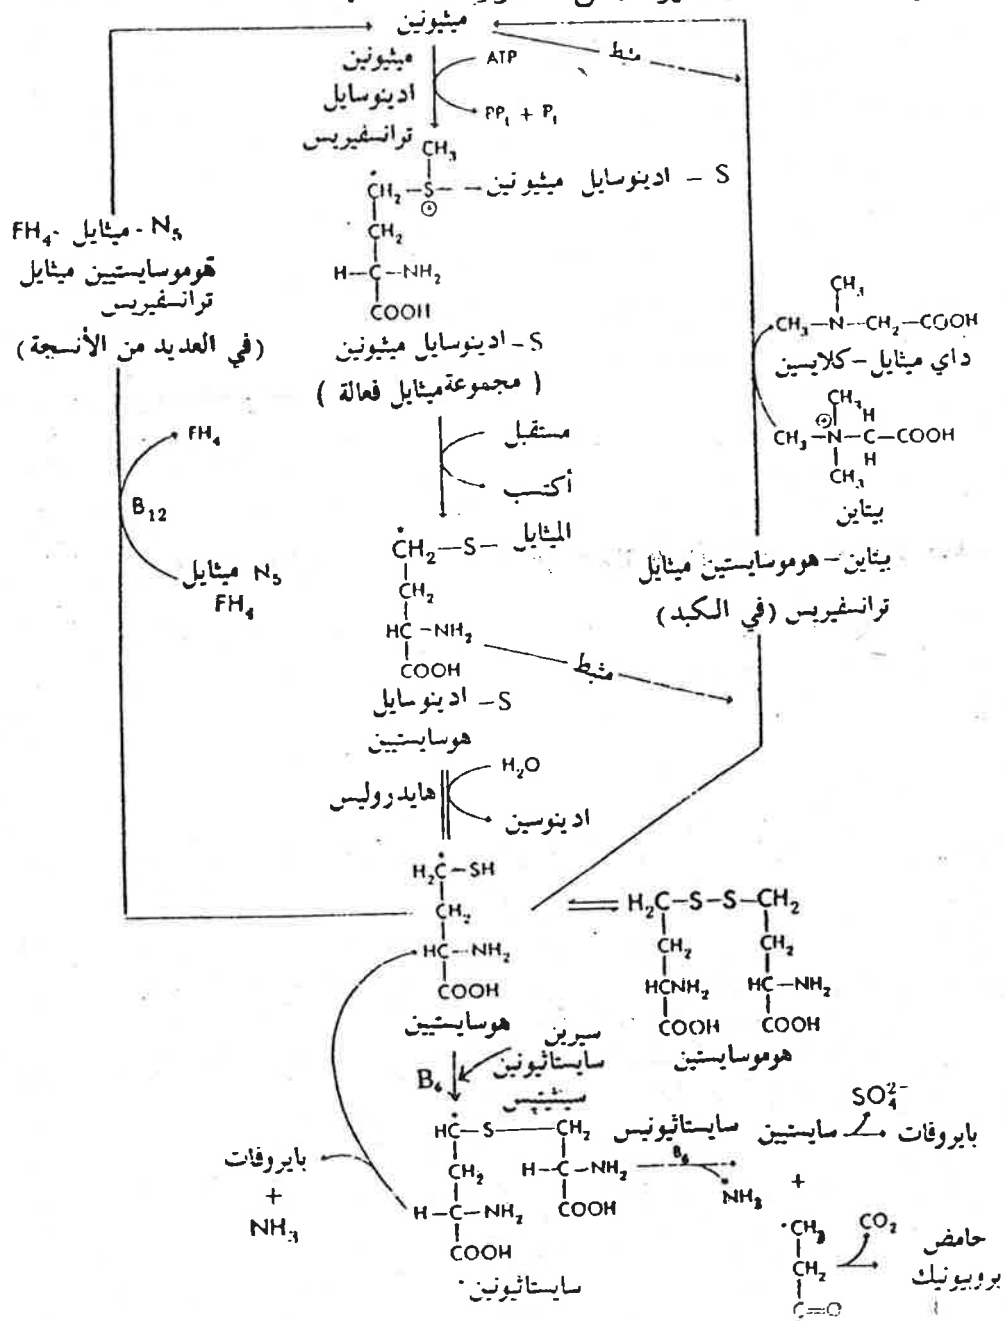 ميثيونين
مثبط
ميثيونين
ادينوسايل
ترانسفيريس
ATP
PP₁ + P₁
CH₃
ĊH₂—S— — ادينوسايل ميثيونين – S
⊕
CH₂
H—C—NH₂
COOH
S – ادينوسايل ميثيونين
( مجموعة ميثايل فعالة )
N₅ - ميثايل -FH₄
هوموسايستيين ميثايل
ترانسفيريس
(في العديد من الأنسجة)
FH₄
B₁₂
N₅ ميثايل
FH₄
CH₃
CH₃—N—CH₂—COOH
داي ميثايل–كلايسين
CH₃ H
⊕
CH₃—N—C—COOH
H
CH₃
بيتاين
بيتاين–هوموسايستين ميثايل
ترانسفيريس (في الكبد)
مستقبل
أكتسب
الميثايل
ĊH₂—S—
CH₂
HC—NH₂
COOH
مثبط
S – ادينوسايل
هوسايستيين
هايدروليس
H₂O
ادينوسين
H₂Ċ—SH
CH₂
HC—NH₂
COOH
هوسايستيين
H₂C—S—S—CH₂
CH₂ CH₂
HCNH₂ HC—NH₂
COOH COOH
هوموسايستين
B₆
سيرين
سايستاثيونين
سينثيتيس
HĊ—S—CH₂
CH₂ H—C—NH₂
COOH
H—C—NH₂
COOH
سايستاثيونين
بايروفات
+
NH₃
سايستاثيونيس
B₆
NH₃
سايستيين
SO₄²⁻
بايروفات
+
CH₃
CH₂
C=O
CO₂
حامض
بروبيونيك